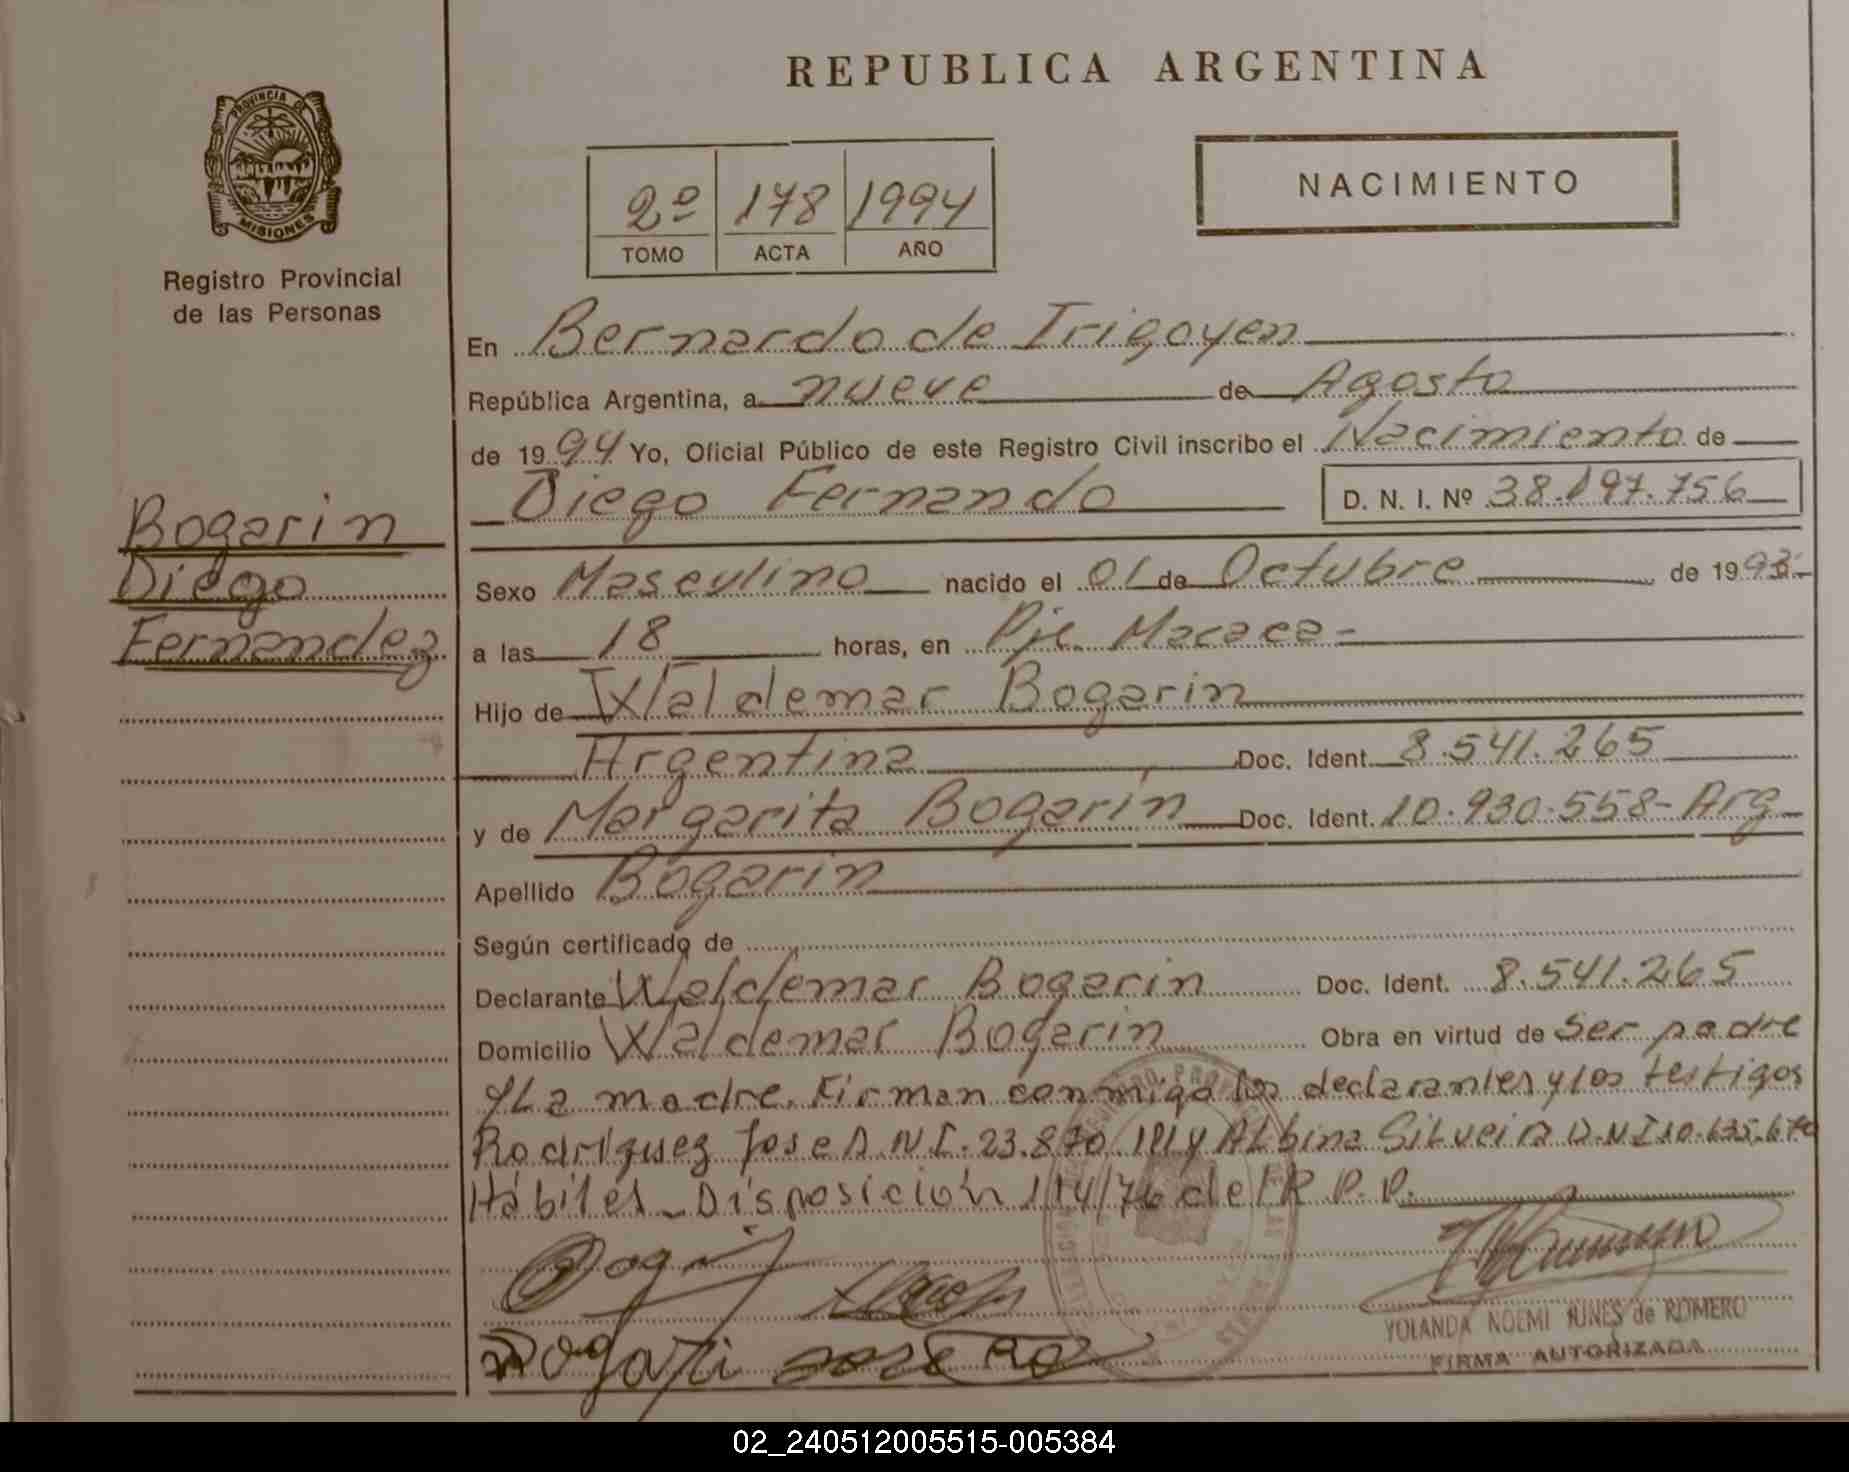 REPUBLICA ARGENTINA
PROVINCIA DE
MISIONES
Registro Provincial
de las Personas
2º 178 1994
TOMO ACTA AÑO
NACIMIENTO
En Bernardo de Irigoyen
República Argentina, a nueve de Agosto
de 1994 Yo, Oficial Público de este Registro Civil inscribo el Nacimiento de
Diego Fernando D. N. I. Nº 38.197.756
Bogarin
Diego
Fernandez
Sexo Masculino nacido el 01 de Octubre de 1993
a las 18 horas, en Pje. Macaca
Hijo de Waldemar Bogarin
Argentina Doc. Ident. 8.541.265
y de Margarita Bogarín Doc. Ident. 10.930.558- Arg
Apellido Bogarin
Según certificado de
Declarante Waldemar Bogarin Doc. Ident. 8.541.265
Domicilio Waldemar Bogarin Obra en virtud de ser padre
y La madre. Firman conmigo los declarantes y los testigos
Rodríguez Jose D.N.I. 23.870. y Albina Silveira D.N.I 10.635.670
Hábiles - Disposición 114/76 del R.P.P.
YOLANDA NOEMI de ROMERO
FIRMA AUTORIZADA
02_240512005515-005384